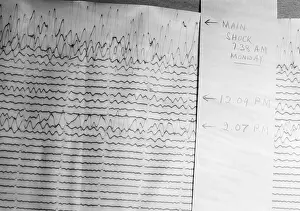 ← MAIN
SHOCK
7.38 AM
MONDAY
← 12.04 PM
← 2.07 PM